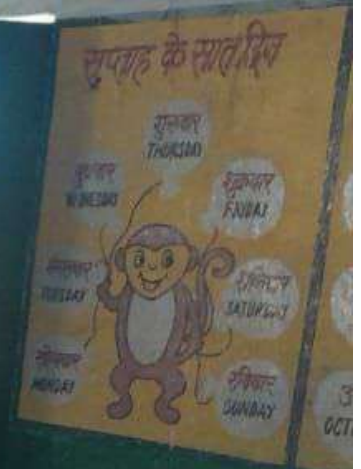 सप्ताह के सात दिन
गुरुवार
THURSDAY
बुधवार
WEDNESDAY
शुक्रवार
FRIDAY
मंगलवार
TUESDAY
शनिवार
SATURDAY
सोमवार
MONDAY
रविवार
SUNDAY
OCT